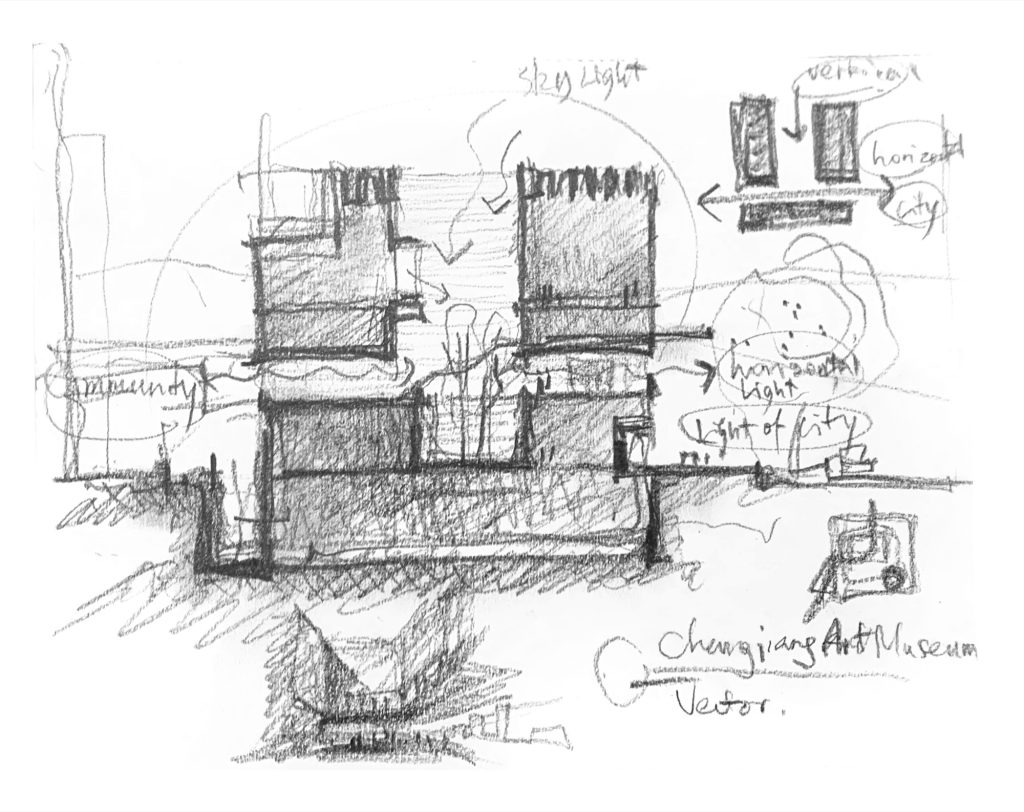 Sky Light
vertical
horizontal
city
Community
horizontal
Light
Light of city
Chongjiang Art Museum
Vector.